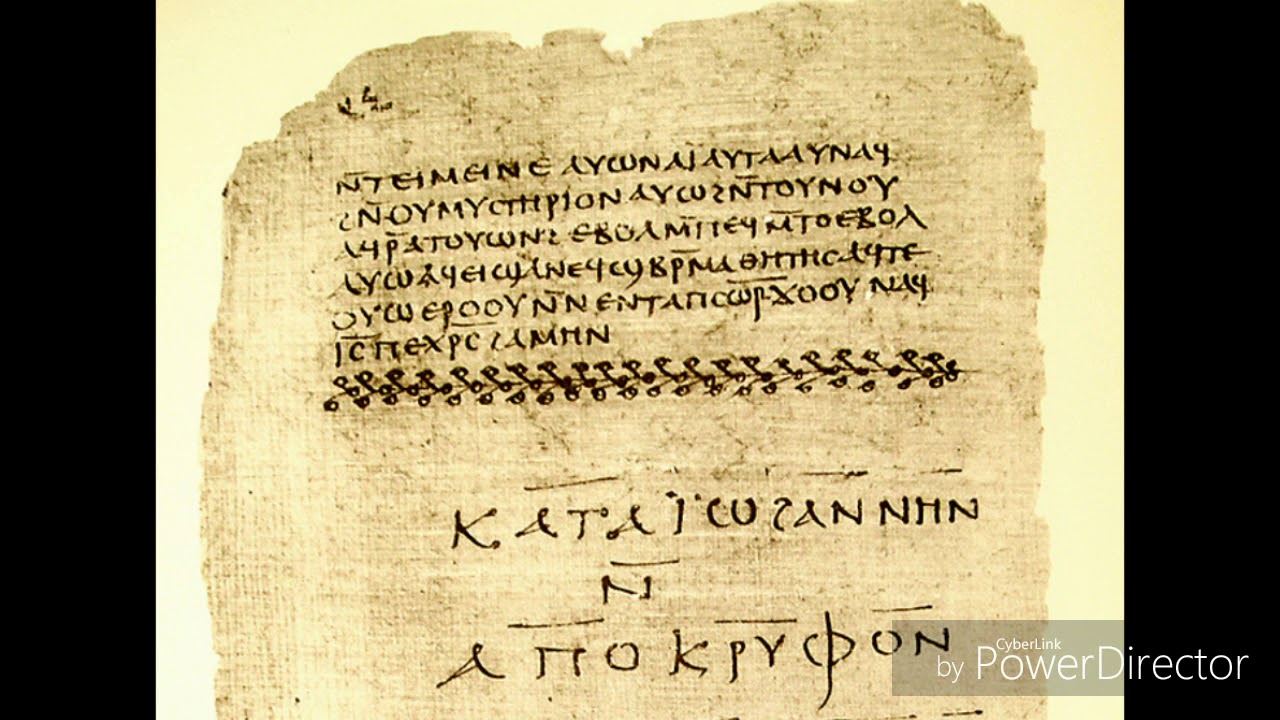 ⲛ̄ⲧⲉⲓⲙⲉⲓⲛⲉ ⲁⲩⲱ ⲛⲁⲓ̈ ⲁⲩⲧⲁⲁⲩ ⲛⲁϥ
ϩⲛ̄ⲟⲩⲙⲩⲥⲧⲏⲣⲓⲟⲛ ⲁⲩⲱ ϩⲛ̄ⲧⲟⲩⲛⲟⲩ
ⲁϥⲣ̄ⲁⲧⲟⲩⲱⲛϩ ⲉⲃⲟⲗ ⲙ̄ⲡⲉϥⲙ̄ⲧⲟ ⲉⲃⲟⲗ
ⲁⲩⲱ ⲁϥⲉⲓ ϣⲁ ⲛⲉϥϣⲃⲣ̄ⲙⲁⲑⲏⲧⲏⲥ ⲁϥⲧⲉ
ⲟⲩⲱ ⲉⲣⲟⲟⲩ ⲛ̄ⲛⲉⲛⲧⲁⲡⲥⲱ̄ⲣ̄ ϫⲟⲟⲩ ⲛⲁϥ
ⲓ̄ⲥ̄ ⲡⲉⲭⲣ̄ⲥ̄ ϩⲁⲙⲏⲛ
ⲕⲁⲧⲁ ⲓ̈ⲱϩⲁⲛⲛⲏⲛ
ⲛ̄
ⲁⲡⲟⲕⲣⲩⲫⲟⲛ
CyberLink
by PowerDirector